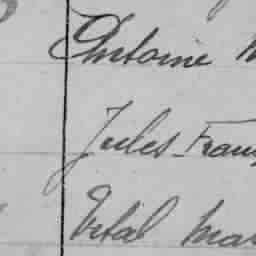 Antoine
Jules-Fran
Vital Mar